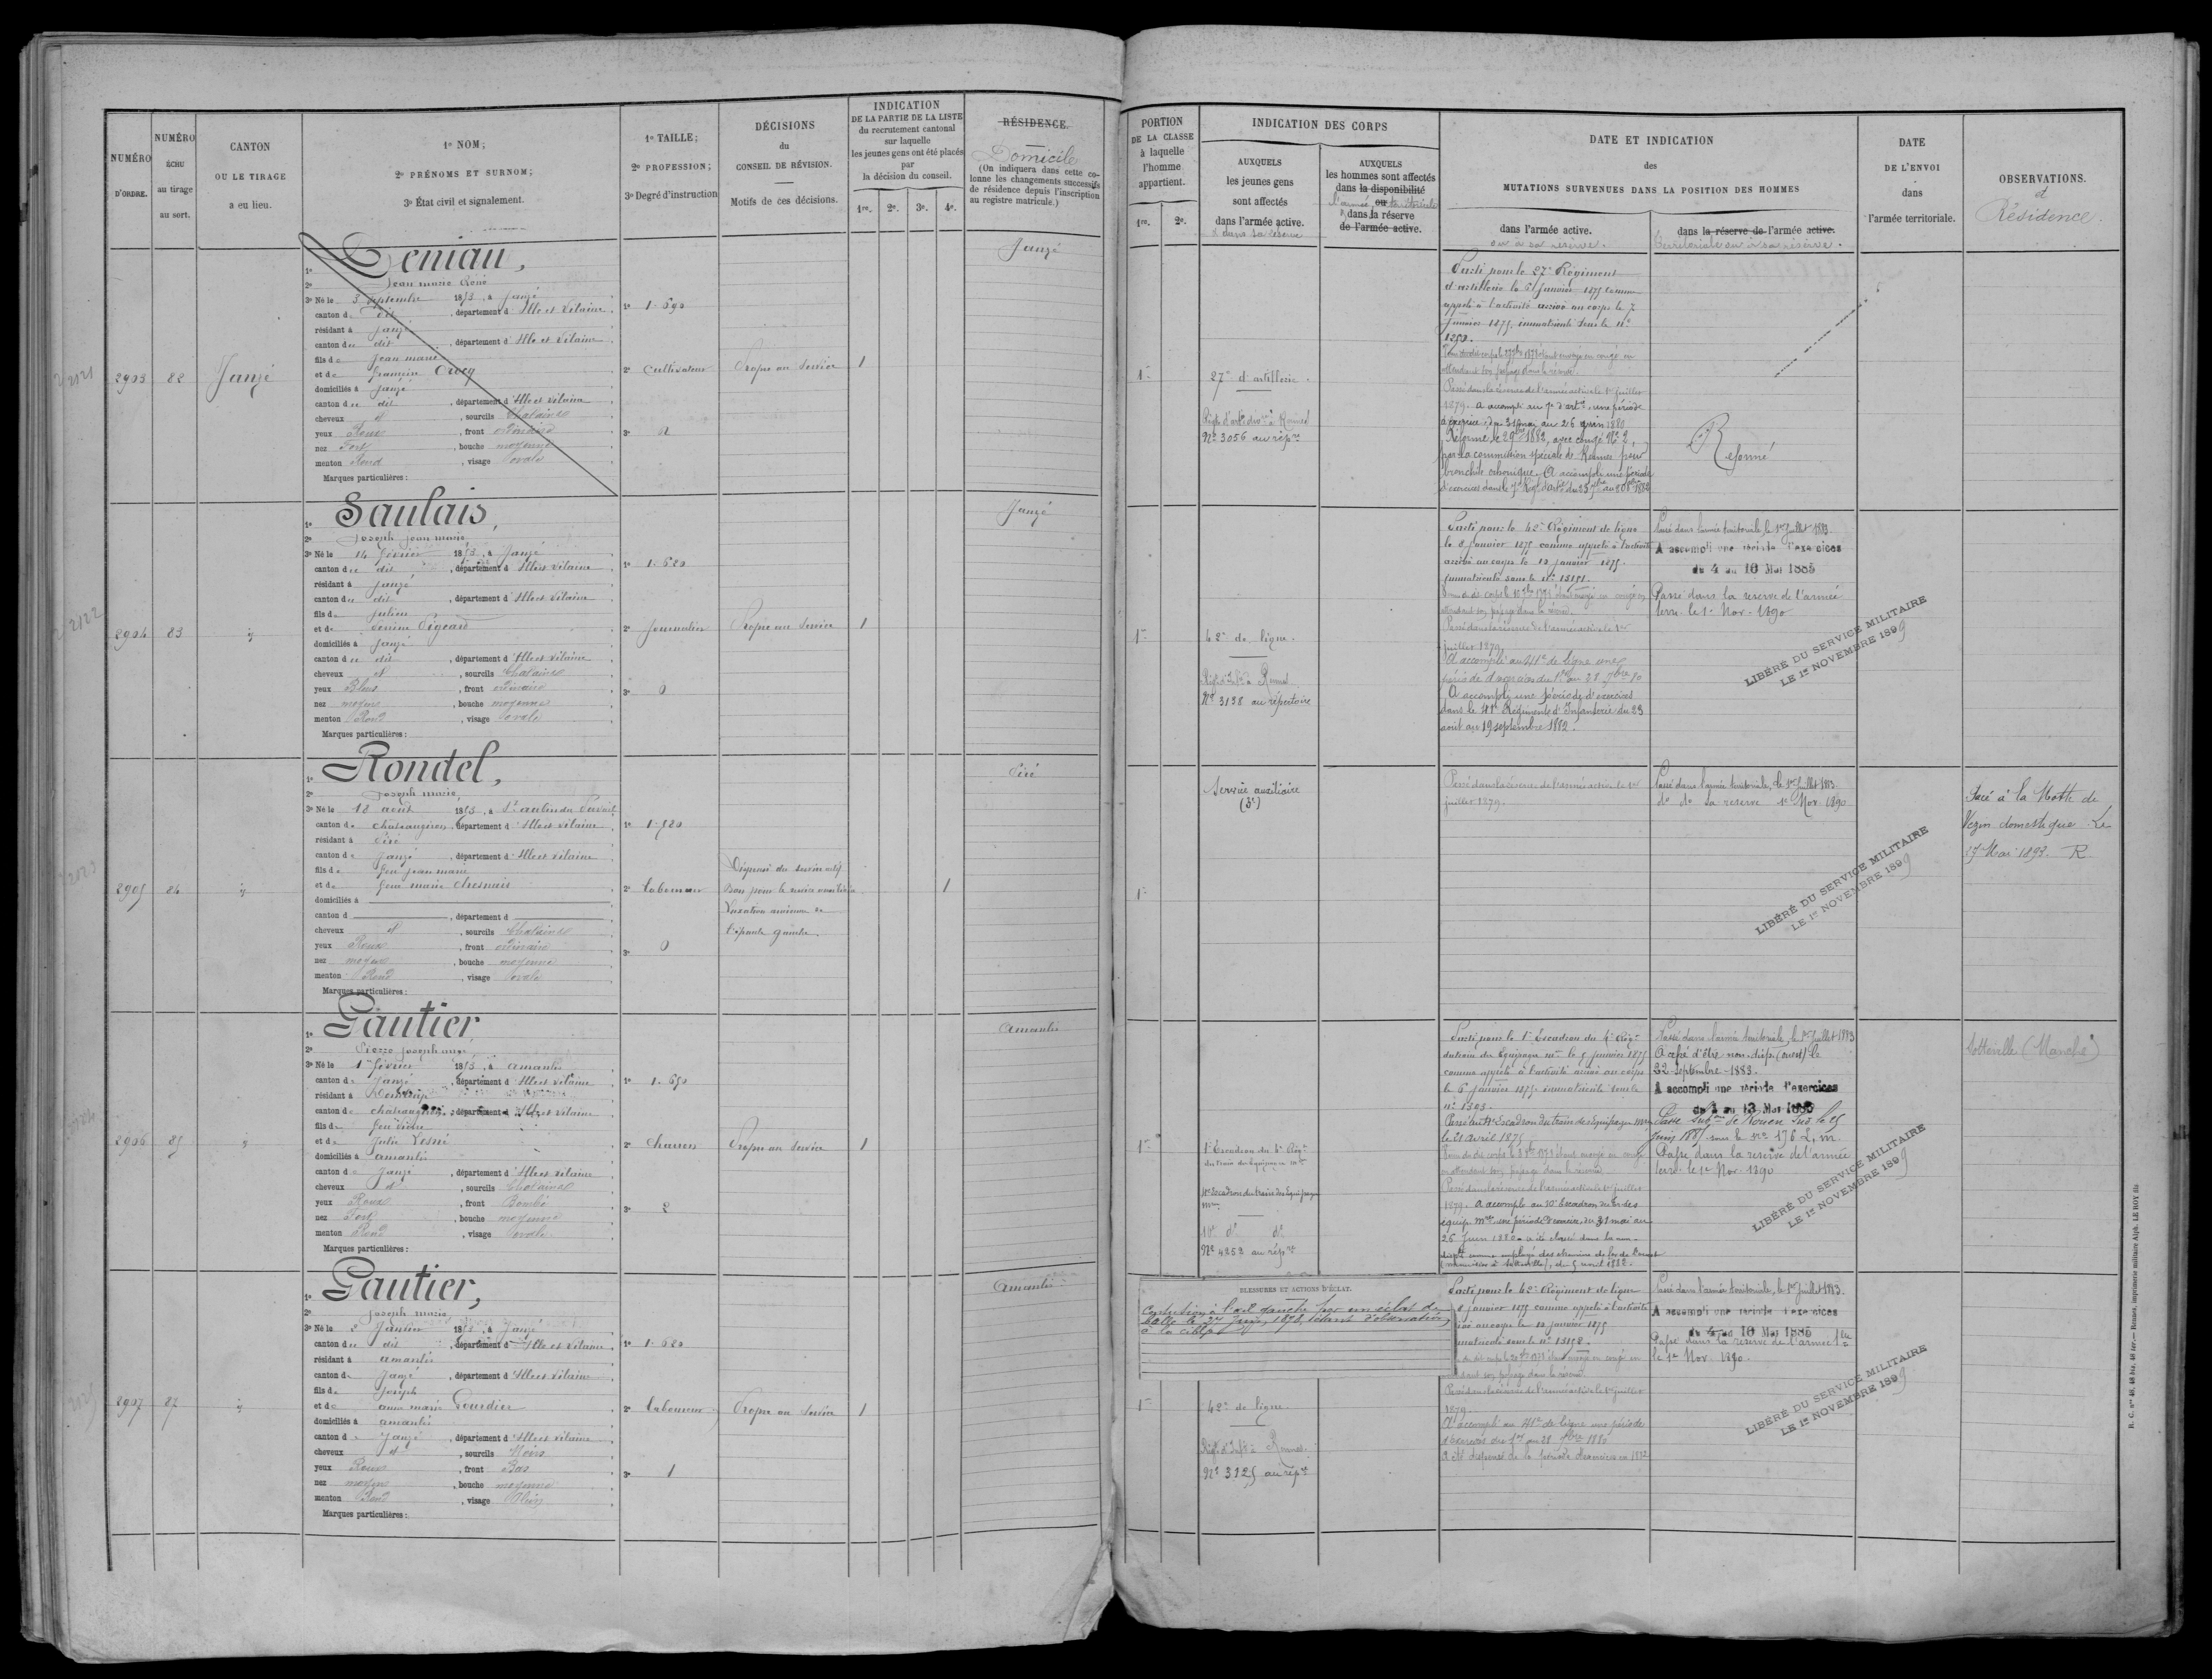 NUMÉRO D'ORDRE.
NUMÉRO ÉCHU au tirage au sort.
CANTON OU LE TIRAGE a eu lieu.
1º NOM;
2º PRÉNOMS ET SURNOM;
3º État civil et signalement.
1º TAILLE;
2º PROFESSION;
3º Degré d'instruction
DÉCISIONS
du
CONSEIL DE RÉVISION.
Motifs de ces décisions.
INDICATION
DE LA PARTIE DE LA LISTE
du recrutement cantonal
sur laquelle
les jeunes gens ont été placés
par
la décision du conseil.
1re. 2e. 3e. 4e.
RÉSIDENCE.
Domicile
(On indiquera dans cette co-
lonne les changements successifs
de résidence depuis l'inscription
au registre matricule.)
PORTION
DE LA CLASSE
à laquelle
l'homme
appartient.
1re. 2e.
INDICATION DES CORPS
AUXQUELS
les jeunes gens
sont affectés
dans l'armée active.
& dans sa réserve
AUXQUELS
les hommes sont affectés
dans la disponibilité
l'armée ou territoriale
dans la réserve
de l'armée active.
DATE ET INDICATION
des
MUTATIONS SURVENUES DANS LA POSITION DES HOMMES
dans l'armée active.
ou à sa réserve.
dans la réserve de l'armée active.
territoriale ou à sa réserve.
DATE
DE L'ENVOI
dans
l'armée territoriale.
OBSERVATIONS.
et
Résidence.
2903
82
Janzé
1º Deniau,
2º Jean marie René
3º Né le 3 Septembre 1853, à Janzé
canton de dit, département d'Ille et Vilaine
résidant à Janzé
canton de dit, département d'Ille et Vilaine
fils de Jean marie
et de françoise Crocq
domiciliés à Janzé
canton de dit, département d'Ille et Vilaine
cheveux et, sourcils Chatains
yeux Roux, front ordinaire
nez Fort, bouche moyenne
menton Rond, visage ovale
Marques particulières:
1º 1.690
2º Cultivateur
3º 2
Propre au Service
1
Janzé
1re
27e d'artillerie.
Nº 3056 au rép.re
Parti pour le 27e Régiment
d'artillerie le 6 Janvier 1875 comme
appelé à l'activité arrivé au corps le 7
Janvier 1875, immatriculé sous le nº
1250.
attendant son passage dans la réserve.
Passé dans la réserve de l'armée active le 1er juillet
1879. A accompli au 7e d'art.ie une période
d'exercice du 31 mai au 26 juin 1880
Réformé le 29 1882, avec congé Nº 2,
par la commission spéciale de Rennes pour
bronchite chronique. A accompli une période
d'exercices dans le 7e Régt d'art.ie
Réformé
2904
83
1º Saulais,
2º Joseph Jean marie
3º Né le 14 février 1853, à Janzé
canton de dit, département d'Ille et Vilaine
résidant à Janzé
canton de dit, département d'Ille et Vilaine
fils de Julien
et de
domiciliés à Janzé
canton de dit, département d'Ille et Vilaine
cheveux et, sourcils Chatains
yeux Bleus, front ordinaire
nez moyen, bouche moyenne
menton Rond, visage ovale
Marques particulières:
1º 1.620
2º Journalier
3º 0
Propre au Service
1
Janzé
1re
42e de ligne.
Nº 3138 au répertoire
Parti pour le 42e Régiment de ligne
le 8 Janvier 1875 comme appelé à l'activité
arrivé au corps le 10 janvier 1875.
Immatriculé sous le nº 15151.
attendant son passage dans la réserve.
Passé dans la réserve de l'armée active le 1er
juillet 1879.
A accompli au 41e de ligne une
période d'exercices du 1er au 28 7bre 80
A accompli une période d'exercices
dans le 41e Régiment d'Infanterie du 23
août au 19 septembre 1882.
Passé dans l'armée territoriale, le 1er Juillet 1883.
A accompli une période d'exercices
du 4 au 16 Mai 1885
Passé dans la réserve de l'armée
terr. le 1er Nov. 1890
LIBÉRÉ DU SERVICE MILITAIRE
LE 1er NOVEMBRE 1899
2905
84
1º Rondel,
2º Joseph marie,
3º Né le 18 août 1853, à St aubin du Pavail
canton de chateaugiron, département d'Ille et Vilaine
résidant à Piré
canton de Janzé, département d'Ille et Vilaine
fils de feu jean marie
et de feue marie Chesnais
domiciliés à
canton d, département d
cheveux et, sourcils Chatains
yeux Roux, front ordinaire
nez moyen, bouche moyenne
menton Rond, visage ovale
Marques particulières:
2º Laboureur
3º 0
Dispensé du service actif
Bon pour le service auxiliaire
Luxation ancienne de
l'épaule gauche.
1
Piré
1re
Service auxiliaire
(3e)
Passé dans la réserve de l'armée active le 1er
juillet 1879.
Passé dans l'armée territoriale, le 1er Juillet 1883.
do do sa réserve 1er Nov. 1890
LIBÉRÉ DU SERVICE MILITAIRE
LE 1er NOVEMBRE 1899
Piré à la Motte de
Vezin domestique. Le
27 Mai 1893. R.
2906
85
1º Gautier,
2º Pierre Joseph ange,
3º Né le 17 février 1853, à amanlis
canton de Janzé, département d'Ille et Vilaine
résidant à Domloup
canton de chateaugiron, département d'Ille et Vilaine
fils de feu
et de Julie
domiciliés à amanlis
canton de Janzé, département d'Ille et Vilaine
cheveux et, sourcils Chatains
yeux Roux, front Bombé
nez Fort, bouche moyenne
menton Rond, visage ovale
Marques particulières:
1º 1.650
2º Charron
3º 2
Propre au Service
1
Amanlis
1re
1er Escadron du 4e Rég.t
du train des Equipages m.res
4e Escadron du train des Equipages
m.res
10e do do
Nº 4252 au rép.re
Parti pour le 1er Escadron du 4e Rég.t
du train des Equipages m.res le 5 Janvier 1875
comme appelé à l'activité arrivé au corps
le 6 Janvier 1875, immatriculé sous le
nº 1503.
Passé au 4e Escadron du train des équipages m.res
le 21 avril 1875
en attendant son passage dans la réserve.
Passé dans la réserve de l'armée active le 1er juillet
1879. A accompli au 10e Escadron du tr. des
équip. m.res une période d'exercices du 31 mai au
26 Juin 1880. a été classé dans la non-
disp.té comme employé des chemins de fer de l'ouest
(menuisier à Sotteville), du 5 août 1882.
Passé dans l'armée territoriale, le 1er Juillet 1883
A cessé d'être non-disp. (ouest) le
22 Septembre 1883.
A accompli une période d'exercices
Passé dans la réserve de l'armée
terr. le 1er Nov. 1890
LIBÉRÉ DU SERVICE MILITAIRE
LE 1er NOVEMBRE 1899
Sotteville (Manche)
2907
87
1º Gautier,
2º Joseph marie
3º Né le 2 Janvier 1853, à Janzé
canton de dit, département d'Ille et Vilaine
résidant à amanlis
canton de Janzé, département d'Ille et Vilaine
fils de Joseph
et de anne marie Gourdier
domiciliés à amanlis
canton de Janzé, département d'Ille et Vilaine
cheveux et, sourcils Noirs
yeux Roux, front Bas
nez moyen, bouche moyenne
menton Rond, visage Plein
Marques particulières:
1º 1.620
2º Laboureur
3º 1
Propre au Service
1
Amanlis
BLESSURES ET ACTIONS D'ÉCLAT.
Contusion à l'œil gauche par un éclat de
balle le 27 Juin 1878, étant d'observation
à la cible.
1re
42e de ligne.
Nº 3125 au rép.re
Parti pour le 42e Régiment de ligne
8 Janvier 1875 comme appelé à l'activité
au corps le 10 janvier 1875
sous le nº 15152.
Passé dans la réserve de l'armée active le 1er juillet
1879.
A accompli au 41e de ligne une période
d'exercices du 1er au 28 7bre 1880
A été dispensé de la période d'exercices en 1882
Passé dans l'armée territoriale, le 1er Juillet 1883.
A accompli une période d'exercices
du 4 au 16 Mai 1885
Passé dans la réserve de l'armée t.le
le 1er Nov. 1890.
LIBÉRÉ DU SERVICE MILITAIRE
LE 1er NOVEMBRE 1899
R. C. nos 48, 48 bis, 48 ter. — Rennes, imprimerie militaire Alph. LE ROY fils